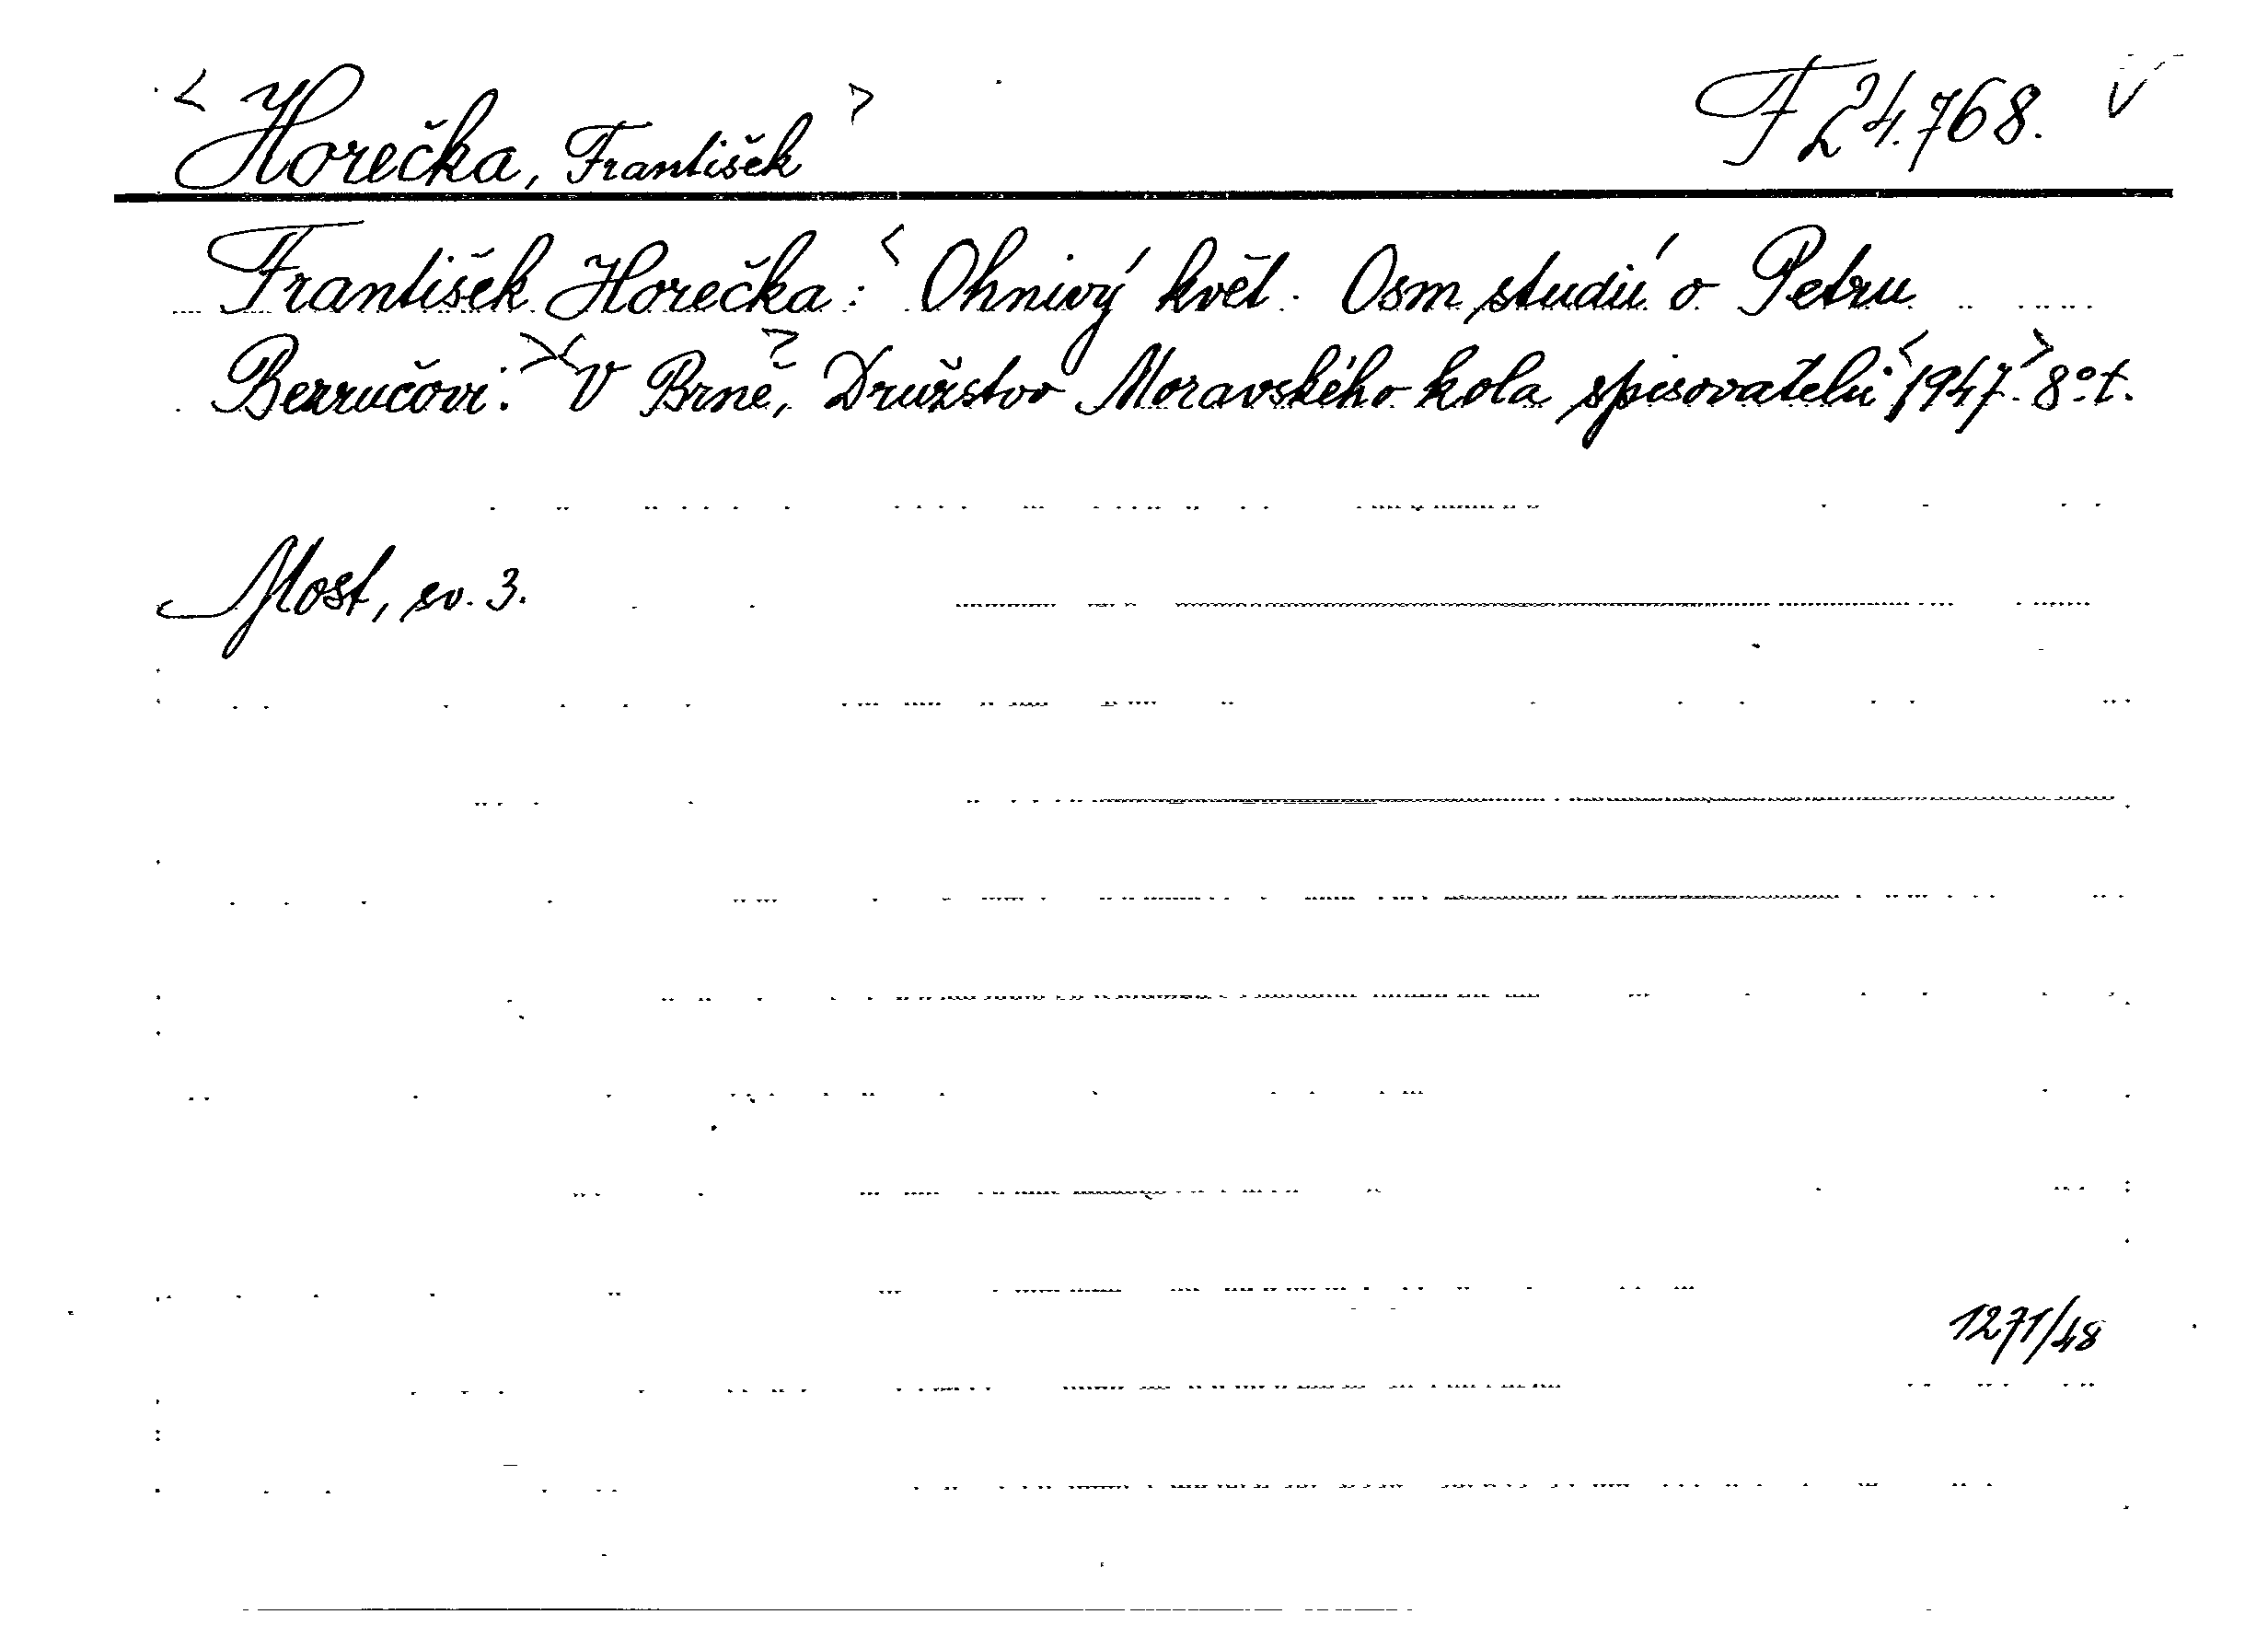 <Horečka, František> F 24.768. V
František Horečka: <Ohnivý květ. Osm studií o Petru
Bezručovi.><V Brně>, Družstvo Moravského kola spisovatelů <1947>. 8° t.
Most, sv. 3.
1271/48